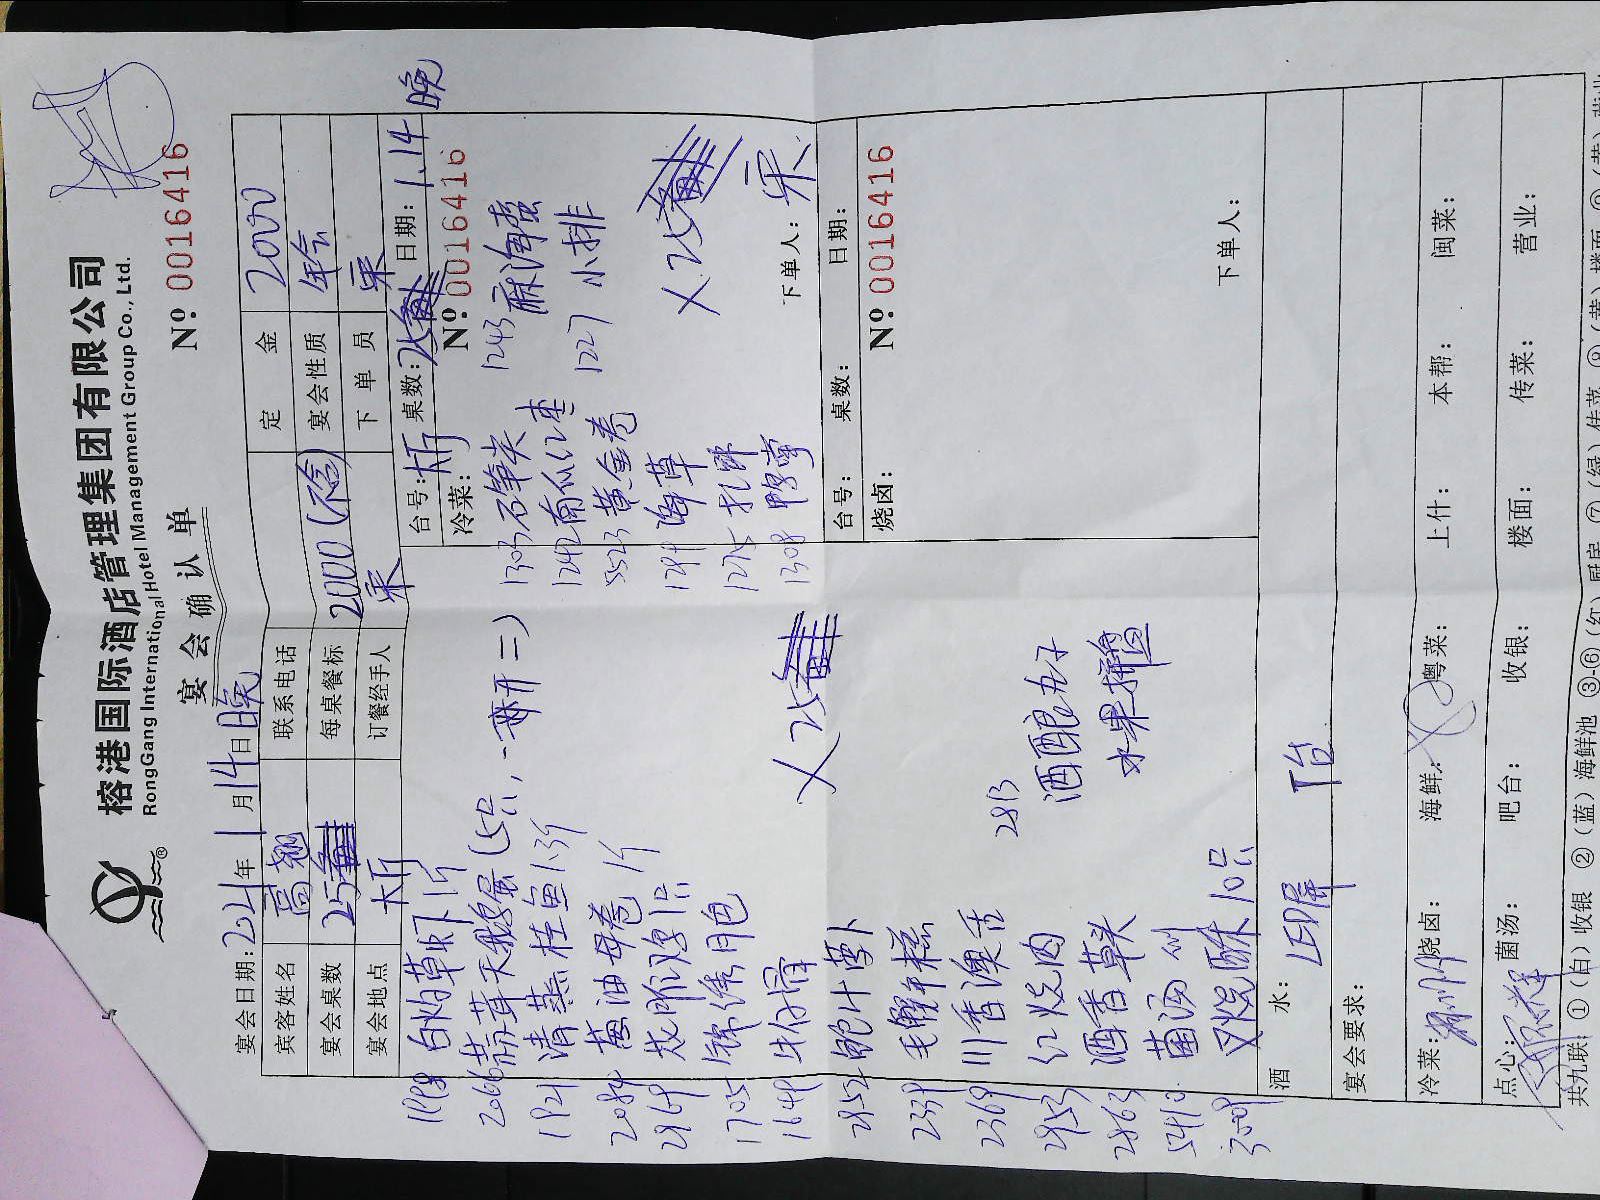 榕港国际酒店管理集团有限公司
RongGang International Hotel Management Group Co., Ltd.
宴会确认单
Nº: 0016416
宴会日期: 2021年1月14日晚
宾客姓名 高翘 联系电话 定金 2000
宴会桌数 25 每桌餐标 2000(不含) 宴会性质 年会
宴会地点 大厅 订餐经手人 下单员
台号: 大厅 桌数: 25 日期: 1.14 晚
冷菜: Nº 0016416
1303 石笋尖 1243 麻海蜇
1242 南瓜红枣 1227 小排
5523 黄金卷
1299 海草
1275 扎蹄
1308 鸭掌
X25
下单人:
台号: 桌数: 日期:
烧卤: Nº 0016416
下单人:
1998 白灼草虾 1斤
2066 荠茸天鹅蛋(5只,一开二)
1921 清蒸桂鱼 1.3斤
2084 葱油母卷 1斤
1705 锦绣
1649 牛仔骨
X25
2852 鲍汁萝卜
2339 毛蟹年糕
2369 川香澳舌
2953 红烧肉
2863 酒香草头
5410 菌汤
3009 叉烧酥 10只
2813 酒酿丸子
水果拼盘
酒水: LED屏 T台
宴会要求:
冷菜: 烧卤: 海鲜: 粤菜: 上什: 本帮: 闽菜:
点心: 菌汤: 吧台: 收银: 楼面: 传菜: 营业:
共九联: ①(白)收银 ②(蓝)海鲜池 ③-⑥(红)厨房 ⑦(绿)传菜 ⑧(黄)楼面